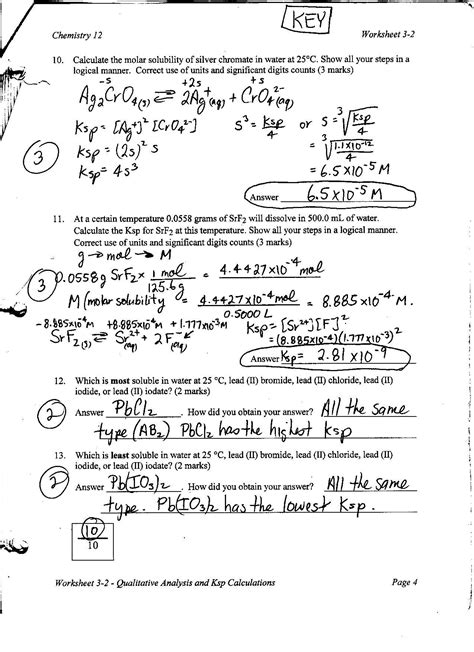 KEY
Chemistry 12 Worksheet 3-2
10. Calculate the molar solubility of silver chromate in water at 25°C. Show all your steps in a
logical manner. Correct use of units and significant digits counts (3 marks)
-s +2s +s
Ag₂CrO₄(s) ⇌ 2Ag⁺(aq) + CrO₄²⁻(aq)
Ksp = [Ag⁺]² [CrO₄²⁻] s³ = Ksp/4 or s = ³√(Ksp/4)
3 Ksp = (2s)² s = ³√(1.1x10⁻¹²/4)
Ksp = 4s³ = 6.5x10⁻⁵ M
Answer 6.5x10⁻⁵ M
11. At a certain temperature 0.0558 grams of SrF₂ will dissolve in 500.0 mL of water.
Calculate the Ksp for SrF₂ at this temperature. Show all your steps in a logical manner.
Correct use of units and significant digits counts (3 marks)
g → mol → M
3 0.0558g SrF₂ x 1 mol/125.6g = 4.4427x10⁻⁴ mol
M (molar solubility = 4.4427x10⁻⁴ mol/0.5000 L = 8.885x10⁻⁴ M.
-8.885x10⁻⁴M +8.885x10⁻⁴M +1.777x10⁻³M Ksp = [Sr²⁺][F⁻]²
SrF₂(s) ⇌ Sr²⁺(aq) + 2F⁻(aq) = (8.885x10⁻⁴)(1.777x10⁻³)²
Answer Ksp = 2.81x10⁻⁹
12. Which is most soluble in water at 25 °C, lead (II) bromide, lead (II) chloride, lead (II)
iodide, or lead (II) iodate? (2 marks)
2 Answer PbCl₂. How did you obtain your answer? All the same
type (AB₂) PbCl₂ has the highest Ksp
13. Which is least soluble in water at 25 °C, lead (II) bromide, lead (II) chloride, lead (II)
iodide, or lead (II) iodate? (2 marks)
2 Answer Pb(IO₃)₂. How did you obtain your answer? All the same
type. Pb(IO₃)₂ has the lowest Ksp.
10
10
Worksheet 3-2 - Qualitative Analysis and Ksp Calculations Page 4